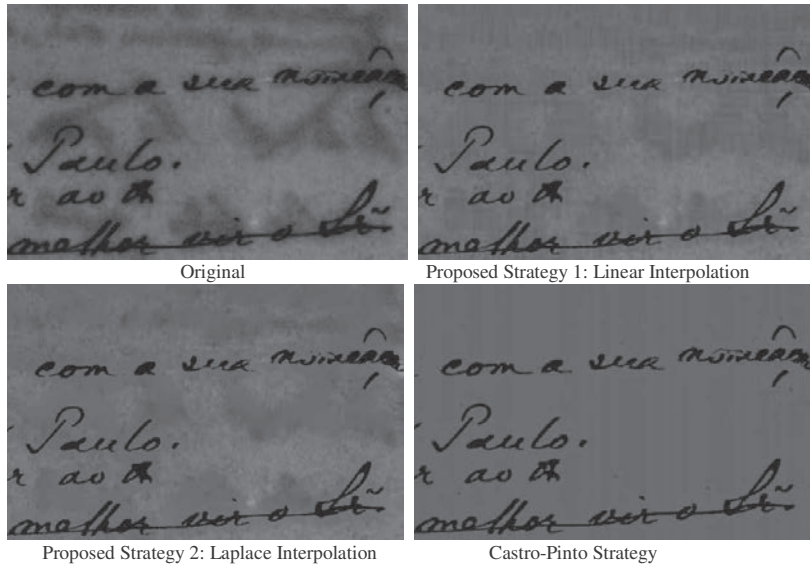 com a sua nomeação
Paulo.
r ao
melhor vir o Sr.
Original
com a sua nomeação
Paulo.
r ao
melhor vir o Sr.
Proposed Strategy 1: Linear Interpolation
com a sua nomeação
Paulo.
r ao
melhor vir o Sr.
Proposed Strategy 2: Laplace Interpolation
com a sua nomeação
Paulo.
r ao
melhor vir o Sr.
Castro-Pinto Strategy